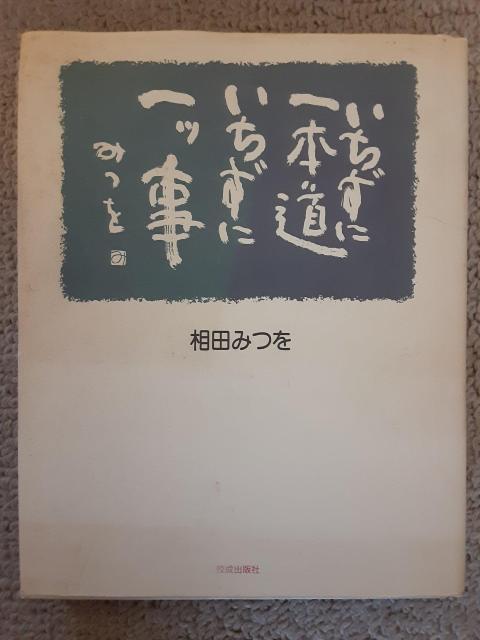 いちずに
一本道
いちずに
一ッ事
みつを
み
相田みつを
佼成出版社